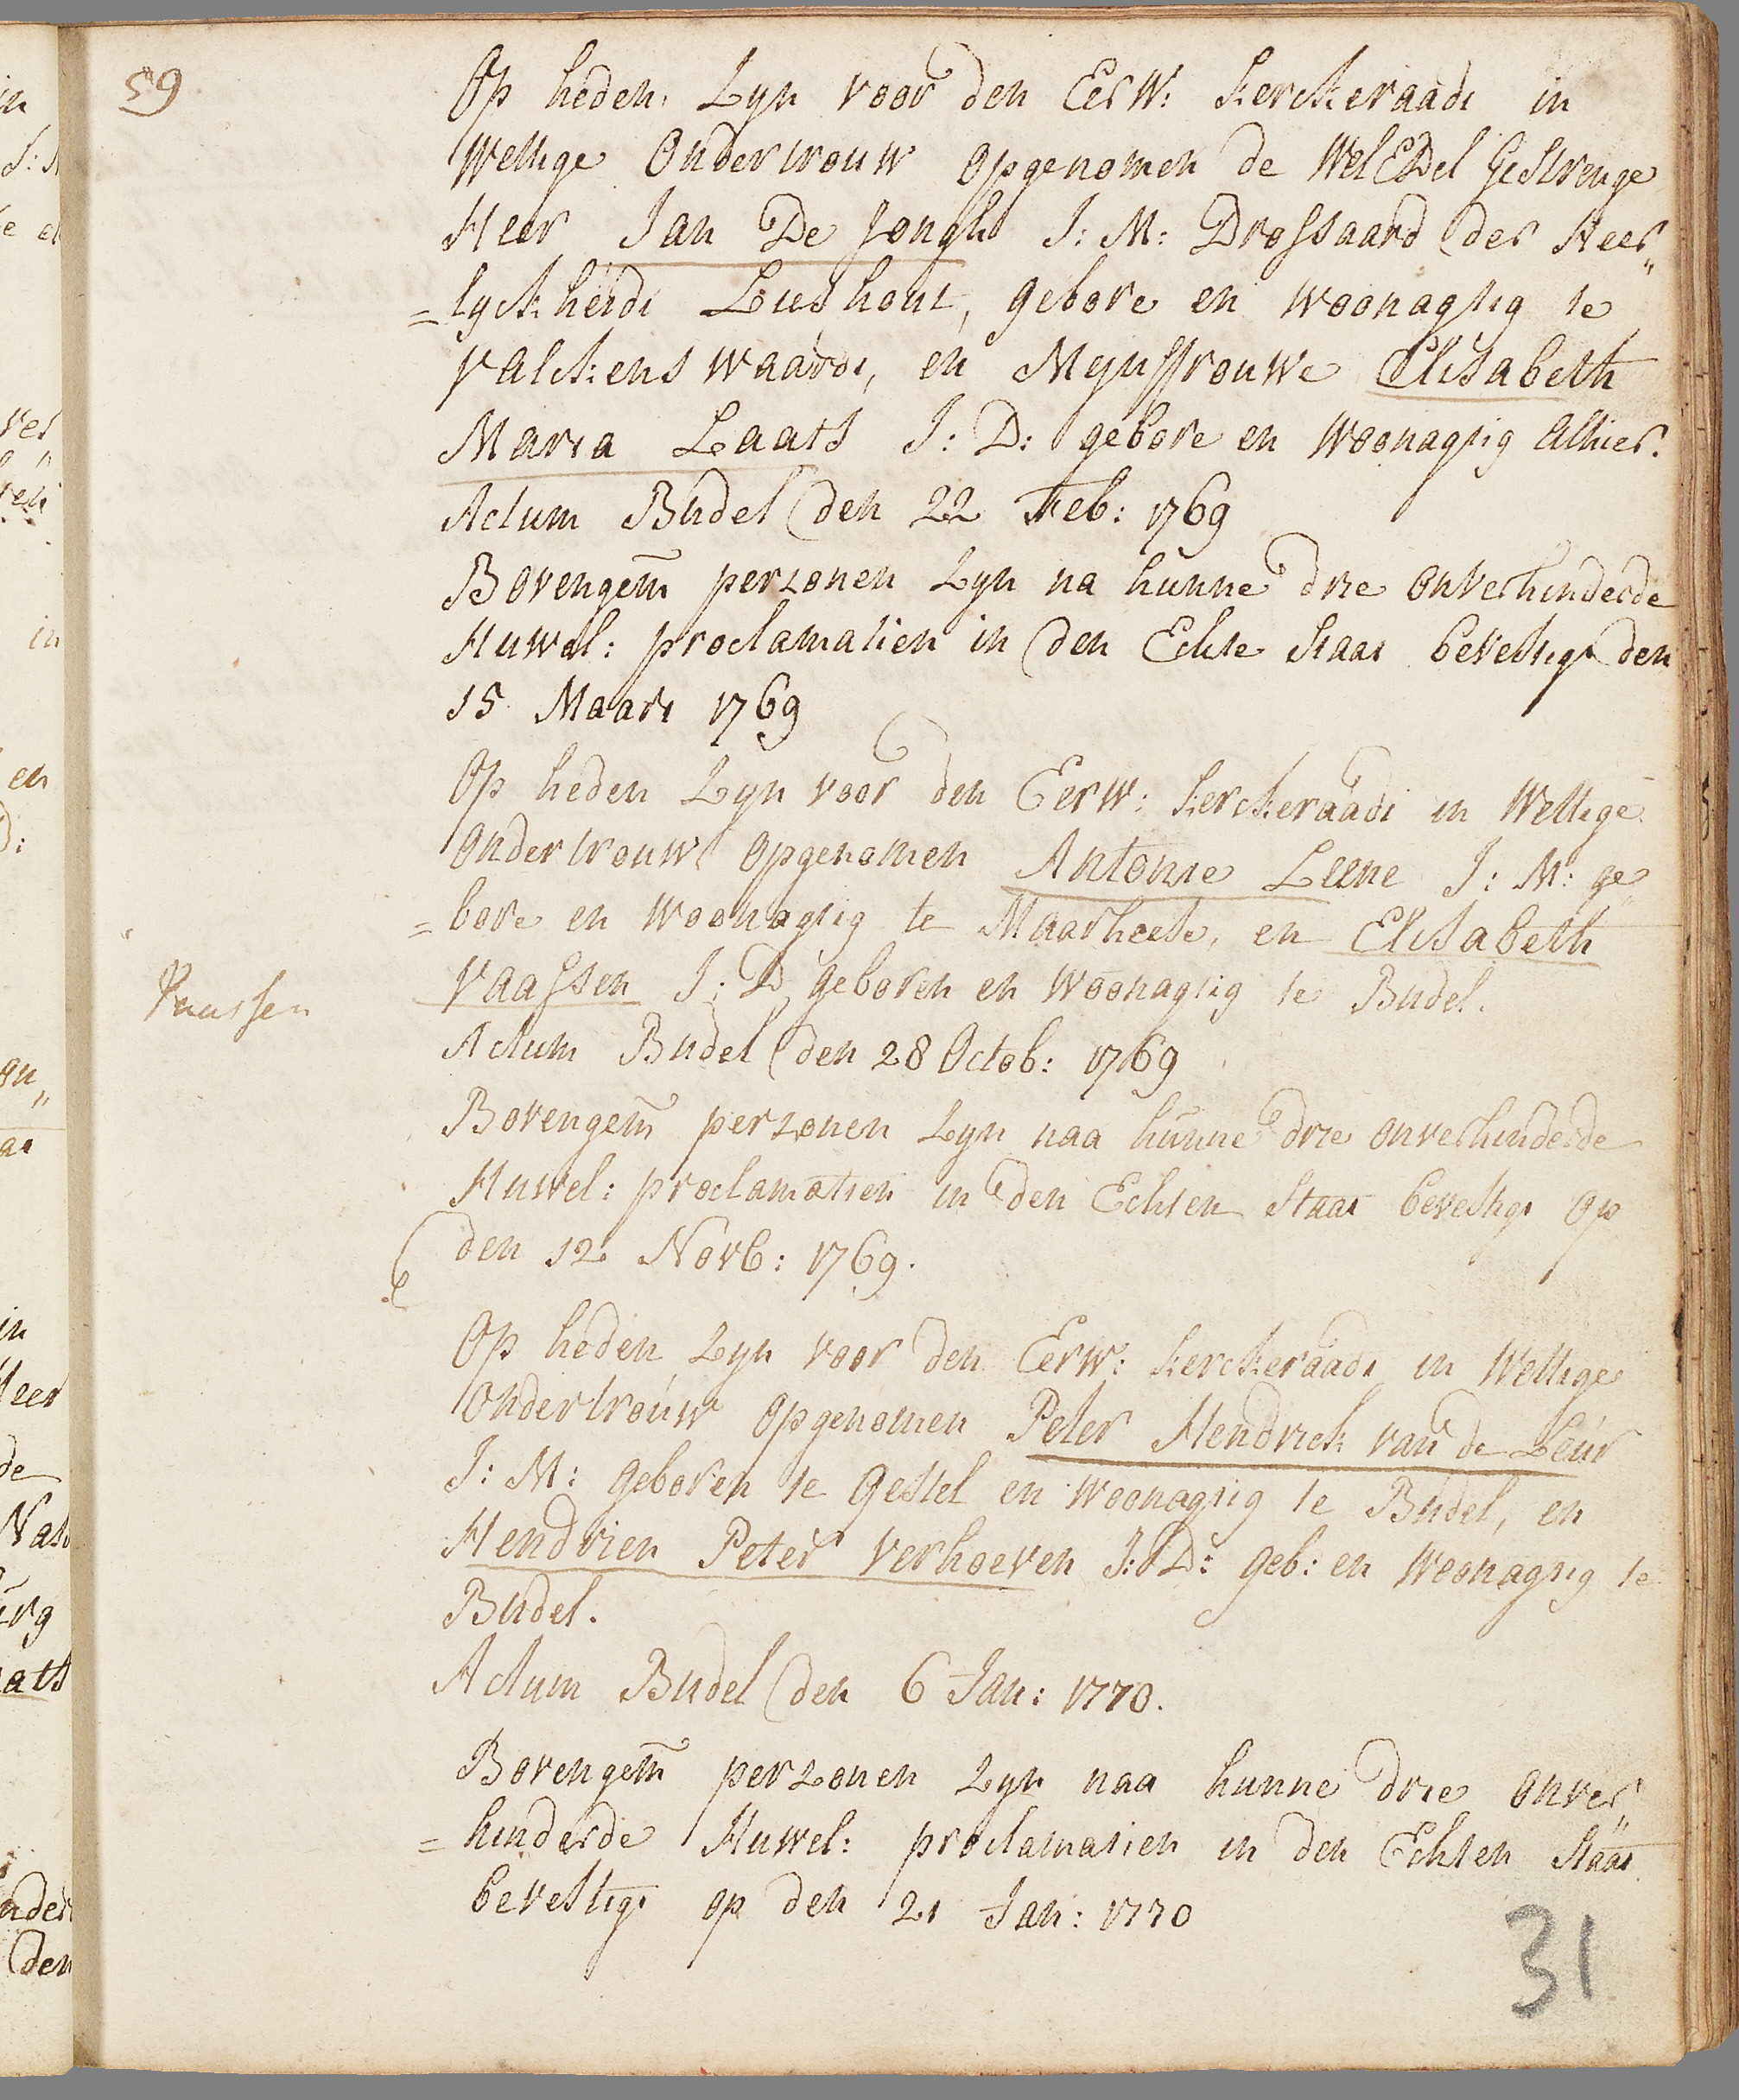 59
Op heden, Zyn voor den Eerw: kerckeraadt in
Wettige Ondertrouw opgenomen de WelEDel GeStrenge
Heer Jan De Jongh J: M: Drossaard der Heer„
=lyckheidt Lieshout, gebore en woonagtig te
Valckenswaardt, en Mynffrouwe Elisabeth
Maria Laats J: D: gebore en woonagtig alhier.
Actum Budel den 22 Feb: 1769
Bovengem̄ perzonen Zyn na hunne drie onverhinderde
Huwel: proclamatien in den Echte staat bevestigt den
15 Maart 1769
Op heden Zyn voor den Eerw: kerckeraadt in Wettige
Ondertrouw opgenomen Antonie Leene J: M: ge„
=bore en woonagtig te Maarheese, en Elisabeth
Vaassen J: D geboren en woonagtig te Budel.
Vaassen
Actum Budel den 28 Octob: 1769
Bovengem̄ perzonen Zyn naa hunne drie onverhinderde
Huwel: proclamatien in den Echten Staat bevestigt op
den 12 Novb: 1769.
Op heden, Zyn voor den Eerw: kerckeraadt in Wettige
Ondertrouw opgenomen Peter Hendrick van de Leur
J: M: geboren te Gestel en woonagtig te Budel, en
Hendrien Peter Verhoeven J: D: geb: en Woonagtig te
Budel.
Actum Budel den 6 Jan: 1770.
Bovengem̄ perzonen Zyn naa hunne drie onver„
=hinderde Huwel: proclamatien in den Echten Staat
bevestigt op den 21 Jan: 1770
31